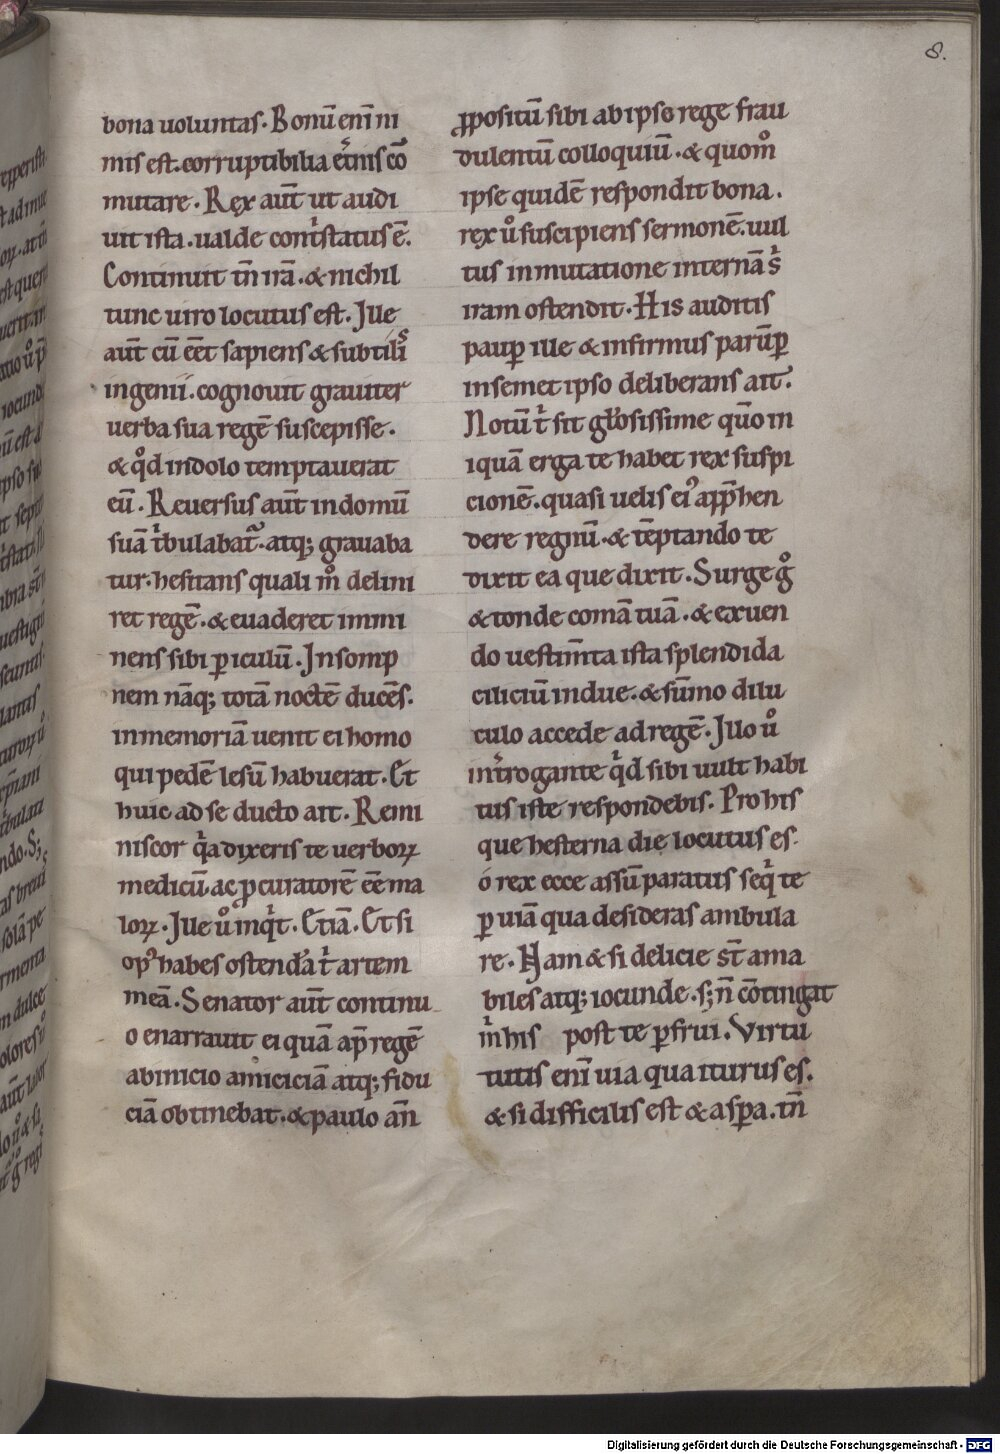 8.
bona uoluntas. Bonū enī ni
mis est. corruptibilia et̄nis cō
mutare. Rex aut̄ ut audi
uit ista. ualde contͥstatus ē.
Continuit tn̄ irā. & nichil
tunc uiro locutus est. Jlle
aut̄ cū eēt sapiens & subtiliˢ
ingenii. cognouit grauiter
uerba sua regē suscepisse.
& qͦd in dolo temptauerat
eū. Reuersus aut̄ in domū
suā tͥbulabat᷑. atq; grauaba
tur. hesitans quali mͦ delini
ret regē. & euaderet immi
nens sibi ꝑiculū. Jnsomp
nem nāq; totā noctē ducēs.
in memoriā uenit ei homo
qui pedē lesū habuerat. Et
huic ad se ducto ait. Remi
niscor qͥa dixeris te uerboꝝ
medicū ac ꝓcuratorē eē ma
loꝝ. Jlle uͦ inqͥt. Etiā. Et si
opꝰ habes ostendā tͥ artem
meā. Senator aut̄ continu
o enarrauit ei quā ap̄ regē
ab inicio amiciciā atq; fidu
ciā obtinebat. & paulo an̄
ꝓpositū sibi ab ipso rege frau
dulentū colloquiū. & quomͦ
ipse quidē respondit bona.
rex uͦ suscipiens sermonē. uul
tus inmutatione internā sͥ
iram ostendit. His auditis
paupꝑ ille & infirmus parūꝑ
in semet ipso deliberans ait.
Notū tͥ sit gl̄osissime quō in
iquā erga te habet rex suspi
cionē. quasi uelis eiꝰ app̄hen
dere regnū. & tēptando te
dixit ea que dixit. Surge gͦ
& tonde comā tuā. & exuen
do uestim̄ta ista splendida
ciliciū indue. & sūmo dilu
culo accede ad regē. Jllo uͦ
int̄rogante qͥd sibi uult habi
tus iste respondebis. Pro his
que hesterna die locutus es.
o rex ecce assū paratus seqͥ te
ꝑ uiā qua desideras ambula
re. Nam & si delicie st̄ ama
biles atq; iocunde. s; n̄ cōtingat
mͥ his post te ꝑfrui. Virtu
tutis enī uia qua iturus es.
& si difficilis est & aspꝑa. tn̄
Digitalisierung gefördert durch die Deutsche Forschungsgemeinschaft - DFG